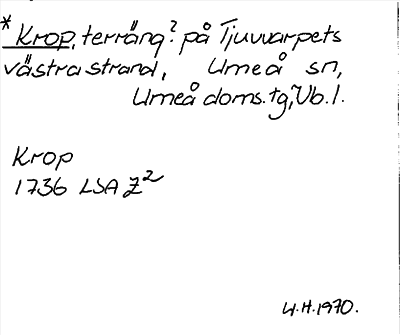 * Krop, terräng? på Tjuvvarpets
västra strand, Umeå sn,
Umeå doms.tg, Vb.l.
Krop
1736 LSA Z²
U.H.1970.